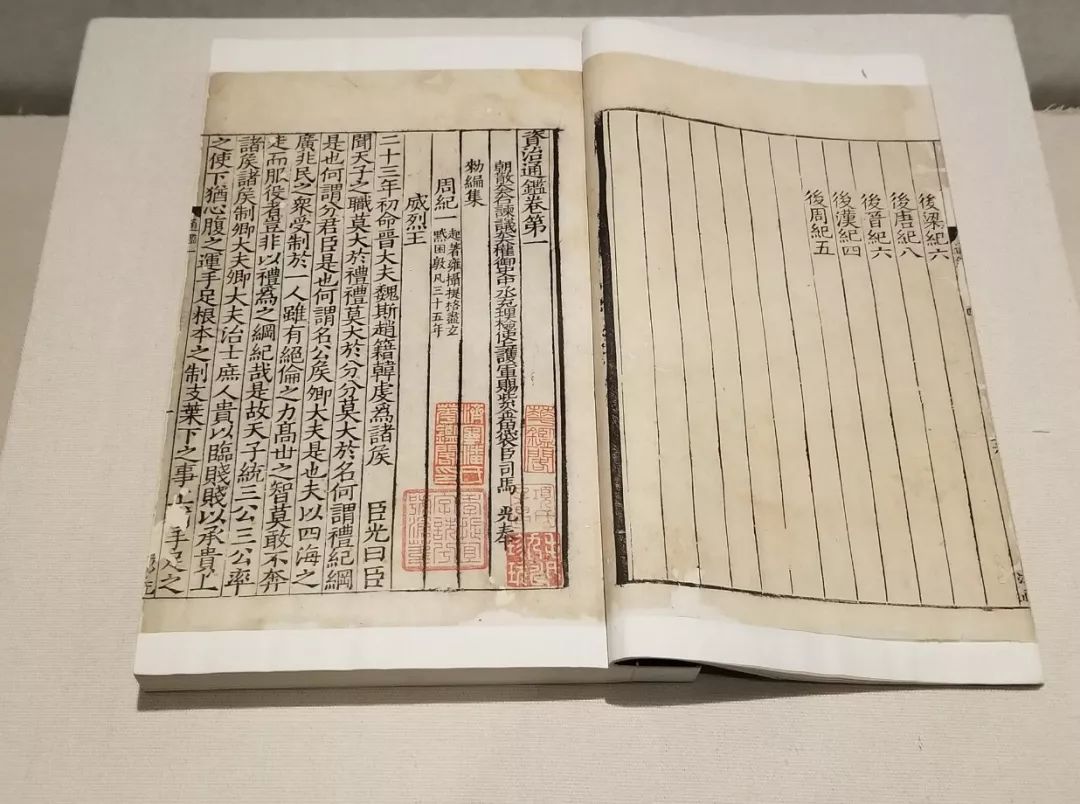 後梁紀六
後唐紀八
後晉紀六
後漢紀四
後周紀五
資治通鑑卷第一
朝散大夫右諫議大夫權御史中丞充理檢使上護軍賜紫金魚袋臣司馬 光奉
勑編集
周紀一
起著雍攝提格盡玄
黓困敦凡三十五年
威烈王
二十三年初命晉大夫魏斯趙籍韓虔爲諸侯 臣光曰臣
聞天子之職莫大於禮禮莫大於分分莫大於名何謂禮紀綱
是也何謂分君臣是也何謂名公侯卿大夫是也夫以四海之
廣兆民之衆受制於一人雖有絶倫之力高世之智莫敢不奔
走而服役者豈非以禮爲之綱紀哉是故天子統三公三公率
諸侯諸侯制卿大夫卿大夫治士庶人貴以臨賤賤以承貴上
之使下猶心腹之運手足根本之制支葉下之事上手足之